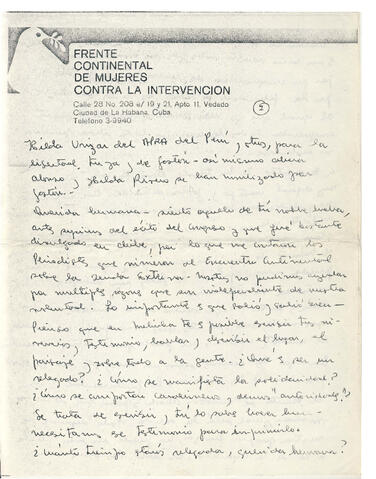 FRENTE
CONTINENTAL
DE MUJERES
CONTRA LA INTERVENCION
Calle 28 No. 208 e/ 19 y 21, Apto. 11, Vedado
Ciudad de La Habana, Cuba
Teléfono 3-9940
Hilda Urizar del APRA del Perú, otros, para la
libertad tuya y de Gastón - así mismo
Alonso y Hilda Rivero se han movilizado por
Gastón.
Querida hermana - siento aquello de tu
del éxito del Congreso y que fue bastante
divulgado en Chile, por lo que me contaron los
Periodistas que vinieron al Encuentro Continental
sobre la Deuda Externa -
por múltiples que son independiente de nuestra
voluntad. Lo importante es que salió y salió
Pienso que en es posible escribir tus
, testimonio, , describir el lugar, el
paisaje y sobre todo a la gente. ¿Qué es ser un
relegado? ¿Cómo se manifiesta la solidaridad?
¿Cómo se comportan carabineros y demás "autoridades"?
Se trata de escribir, tú lo sabes hacer
necesitamos ese testimonio para imprimirlo.
¿Cuánto tiempo estarás relegada, querida hermana?